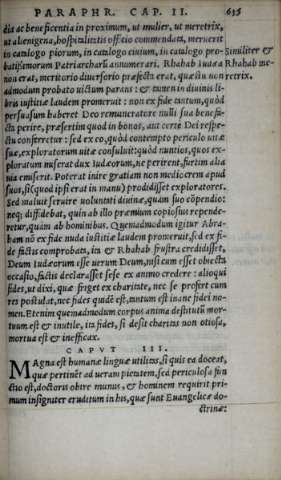 PARAPHR. CAP. II. 635
dia ac beneficentia in proximum, ut mulier, ut meretrix,
ut alienigena, hospitalitatis officio commendata, meruerit
in catalogo piorum, in catalogo ciuium, in catalogo pro- Similiter &
batissimorum Patriarcharum annumerari. Rhahab Iudæa Rhahab me-
non erat, meritorio diuersorio præfecta erat, quæstu non retrix.
admodum probato uictum parans: & tamen in diuinis li-
bris iustitiæ laudem promeruit: non ex fide tantum, quòd
persuasum haberet Deo remuneratore nulli sua benefi-
cta perire, præsertim quod in bonos, aut certè Dei respe-
ctu conferretur: sed ex eo, quòd contempto periculo uitæ
suæ, exploratorum uitæ consuluit: quòd nuntios, quos ex-
ploratum miserat dux Iudæorum, ne perirent, furtim alia
uia emiserit. Poterat inire gratiam non mediocrem apud
suos, si (quod ipsi erat in manu) prodidisset exploratores.
Sed maluit seruire uoluntati diuinæ, quàm suo cōpendio:
neq; diffidebat, quin ab illo præmium copiosius repende-
retur, quàm ab hominibus. Quemadmodum igitur Abra-
ham nō ex fide nuda iustitiæ laudem promeruit, sed ex fi-
de factis comprobata, ita & Rhahab frustra credidisset,
Deum Iudæorum esse uerum Deum, nisi cum esset obiecta
occasio, factis declarasset sese ex animo credere: alioqui
fides, ut dixi, quæ friget ex charitate, nec se profert cum
res postulat, nec fides quidē est, tantum est inane fidei no-
men. Etenim quemadmodum corpus anima destitutū mor-
tuum est & inutile, ita fides, si desit charitas non otiosa,
mortua est & inefficax.
CAPVT III.
MAgna est humanæ linguæ utilitas, si quis ea doceat,
quæ pertinēt ad ueram pietatem, sed periculosa fun
ctio est, doctoris obire munus, & hominem requirit pri-
mum insigniter eruditum in his, quæ sunt Euangelicæ do-
ctrinæ: